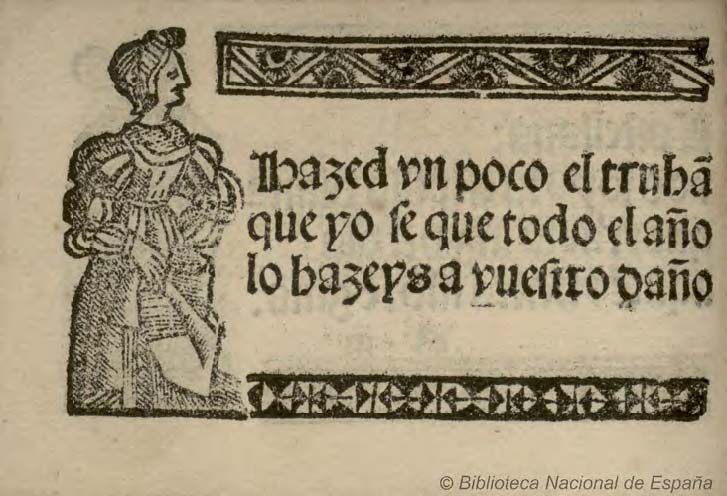 Hazed vn poco el truhã
que yo se que todo el año
lo hazeys a vuestro daño
© Biblioteca Nacional de España